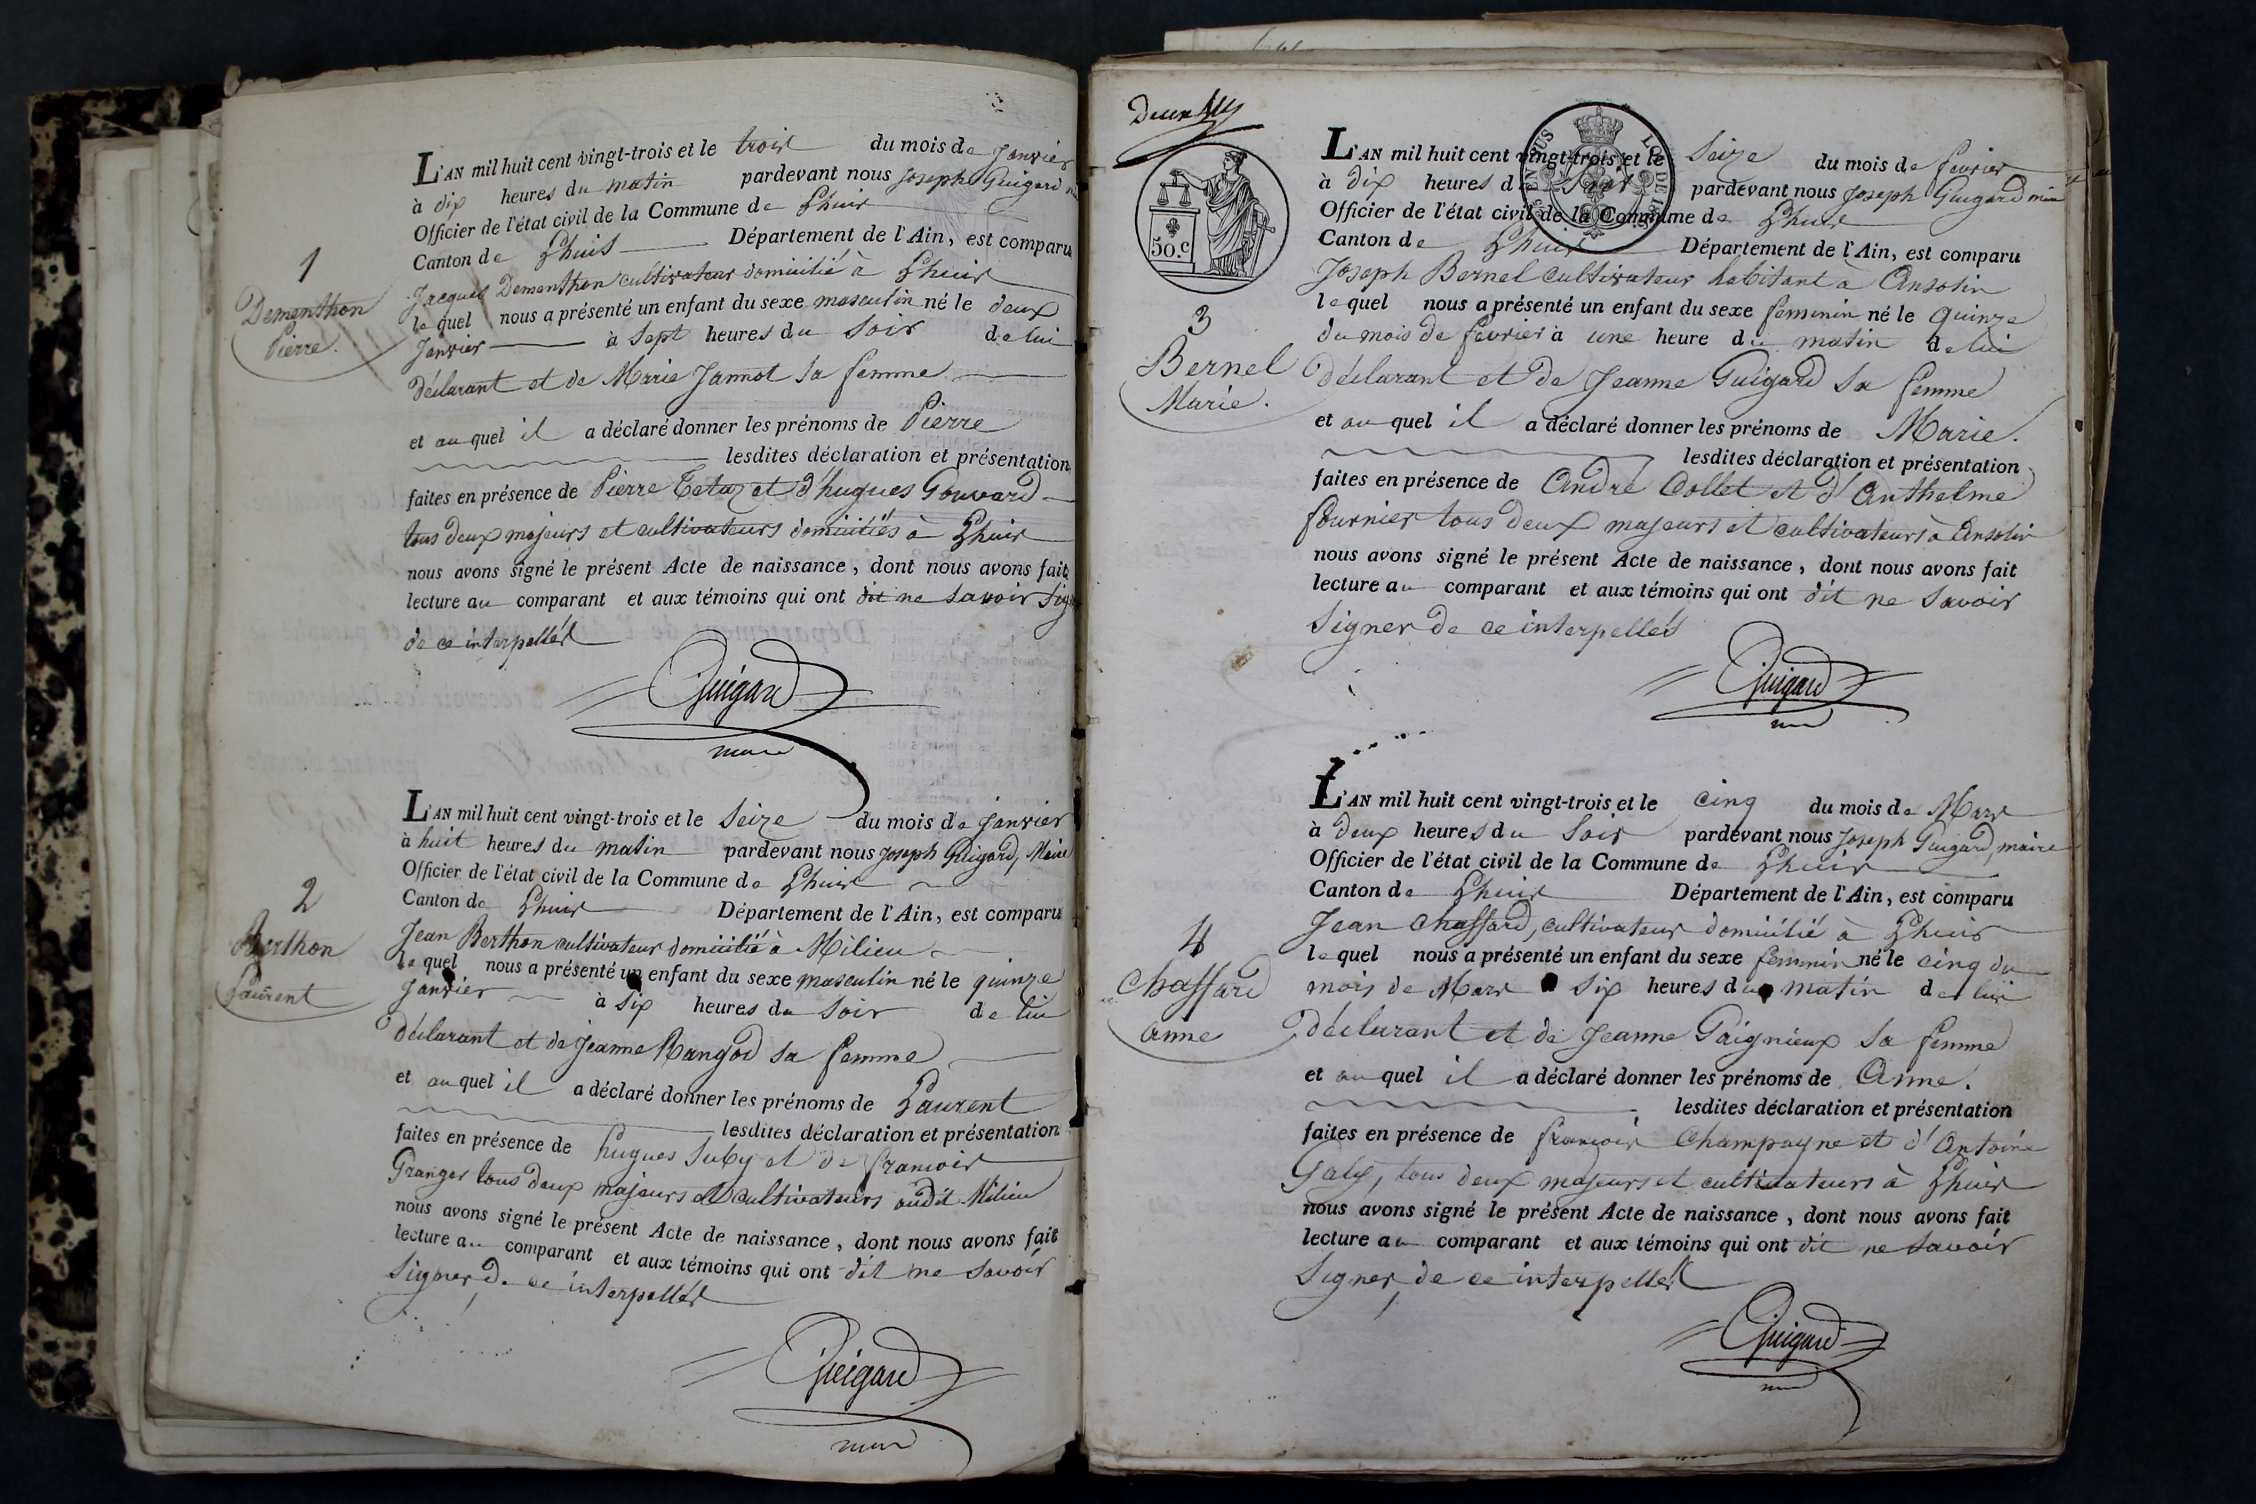 L'AN mil huit cent vingt-trois et le trois du mois de Janvier
à dix heures du matin pardevant nous Joseph Guigard
Officier de l'état civil de la Commune de Lhuis
Canton de Lhuis Département de l'Ain, est comparu
Jacques Dementhon cultivateur domicilié à Lhuis
lequel nous a présenté un enfant du sexe masculin né le deux
Janvier à Sept heures du Soir de lui
déclarant et de Marie Jannot sa femme
et auquel il a déclaré donner les prénoms de Pierre
lesdites déclaration et présentation
faites en présence de Pierre Tetaz et d'hugues Gouvard
tous deux majeurs et cultivateurs domiciliés à Lhuis
nous avons signé le présent Acte de naissance, dont nous avons fait
lecture au comparant et aux témoins qui ont dit ne savoir
de ce interpellés
Guigard
maire
1
Dementhon
Pierre.
L'AN mil huit cent vingt-trois et le Seize du mois de Janvier
à huit heures du matin pardevant nous Joseph Guigard, Maire
Officier de l'état civil de la Commune de Lhuis
Canton de Lhuis Département de l'Ain, est comparu
Jean Berthon cultivateur domicilié à Milieu
lequel nous a présenté un enfant du sexe masculin né le quinze
Janvier à six heures du soir de lui
déclarant et de Jeanne Rangod sa femme
et auquel il a déclaré donner les prénoms de Laurent
lesdites déclaration et présentation
faites en présence de hugues Suby et de francois
Granger tous deux majeurs et cultivateurs audit Milieu
nous avons signé le présent Acte de naissance, dont nous avons fait
lecture au comparant et aux témoins qui ont dit ne savoir
Signer de ce interpellés
Guigard
maire
2
Berthon
Laurent
50.c
L'AN mil huit cent vingt-trois et le Seize du mois de fevrier
à dix heures du Soir pardevant nous Joseph Guigard
Officier de l'état civil de la Commune de Lhuis
Canton de Lhuis Département de l'Ain, est comparu
Joseph Bernel cultivateur habitant à Ansolin
lequel nous a présenté un enfant du sexe feminin né le quinze
du mois de fevrier à une heure du matin de lui
déclarant et de Jeanne Guigard sa femme
et auquel il a déclaré donner les prénoms de Marie.
lesdites déclaration et présentation
faites en présence de André Collet et d'Anthelme
fournier tous deux majeurs et cultivateurs à Ansolin
nous avons signé le présent Acte de naissance, dont nous avons fait
lecture au comparant et aux témoins qui ont dit ne savoir
signer de ce interpellés
Guigard
3
Bernel
Marie.
L'AN mil huit cent vingt-trois et le cinq du mois de Mars
à deux heures du Soir pardevant nous Joseph Guigard, maire
Officier de l'état civil de la Commune de Lhuis
Canton de Lhuis Département de l'Ain, est comparu
Jean Chaffard, cultivateur domicilié à Lhuis
lequel nous a présenté un enfant du sexe feminin né le cinq du
mois de Mars à six heures du matin de lui
déclarant et de Jeanne Paignieux sa femme
et auquel il a déclaré donner les prénoms de Anne.
lesdites déclaration et présentation
faites en présence de francois Champagne et d'Antoine
Galy, tous deux majeurs et cultivateurs à Lhuis
nous avons signé le présent Acte de naissance, dont nous avons fait
lecture au comparant et aux témoins qui ont dit ne savoir
Signer de ce interpellés
Guigard
4
Chaffard
anne